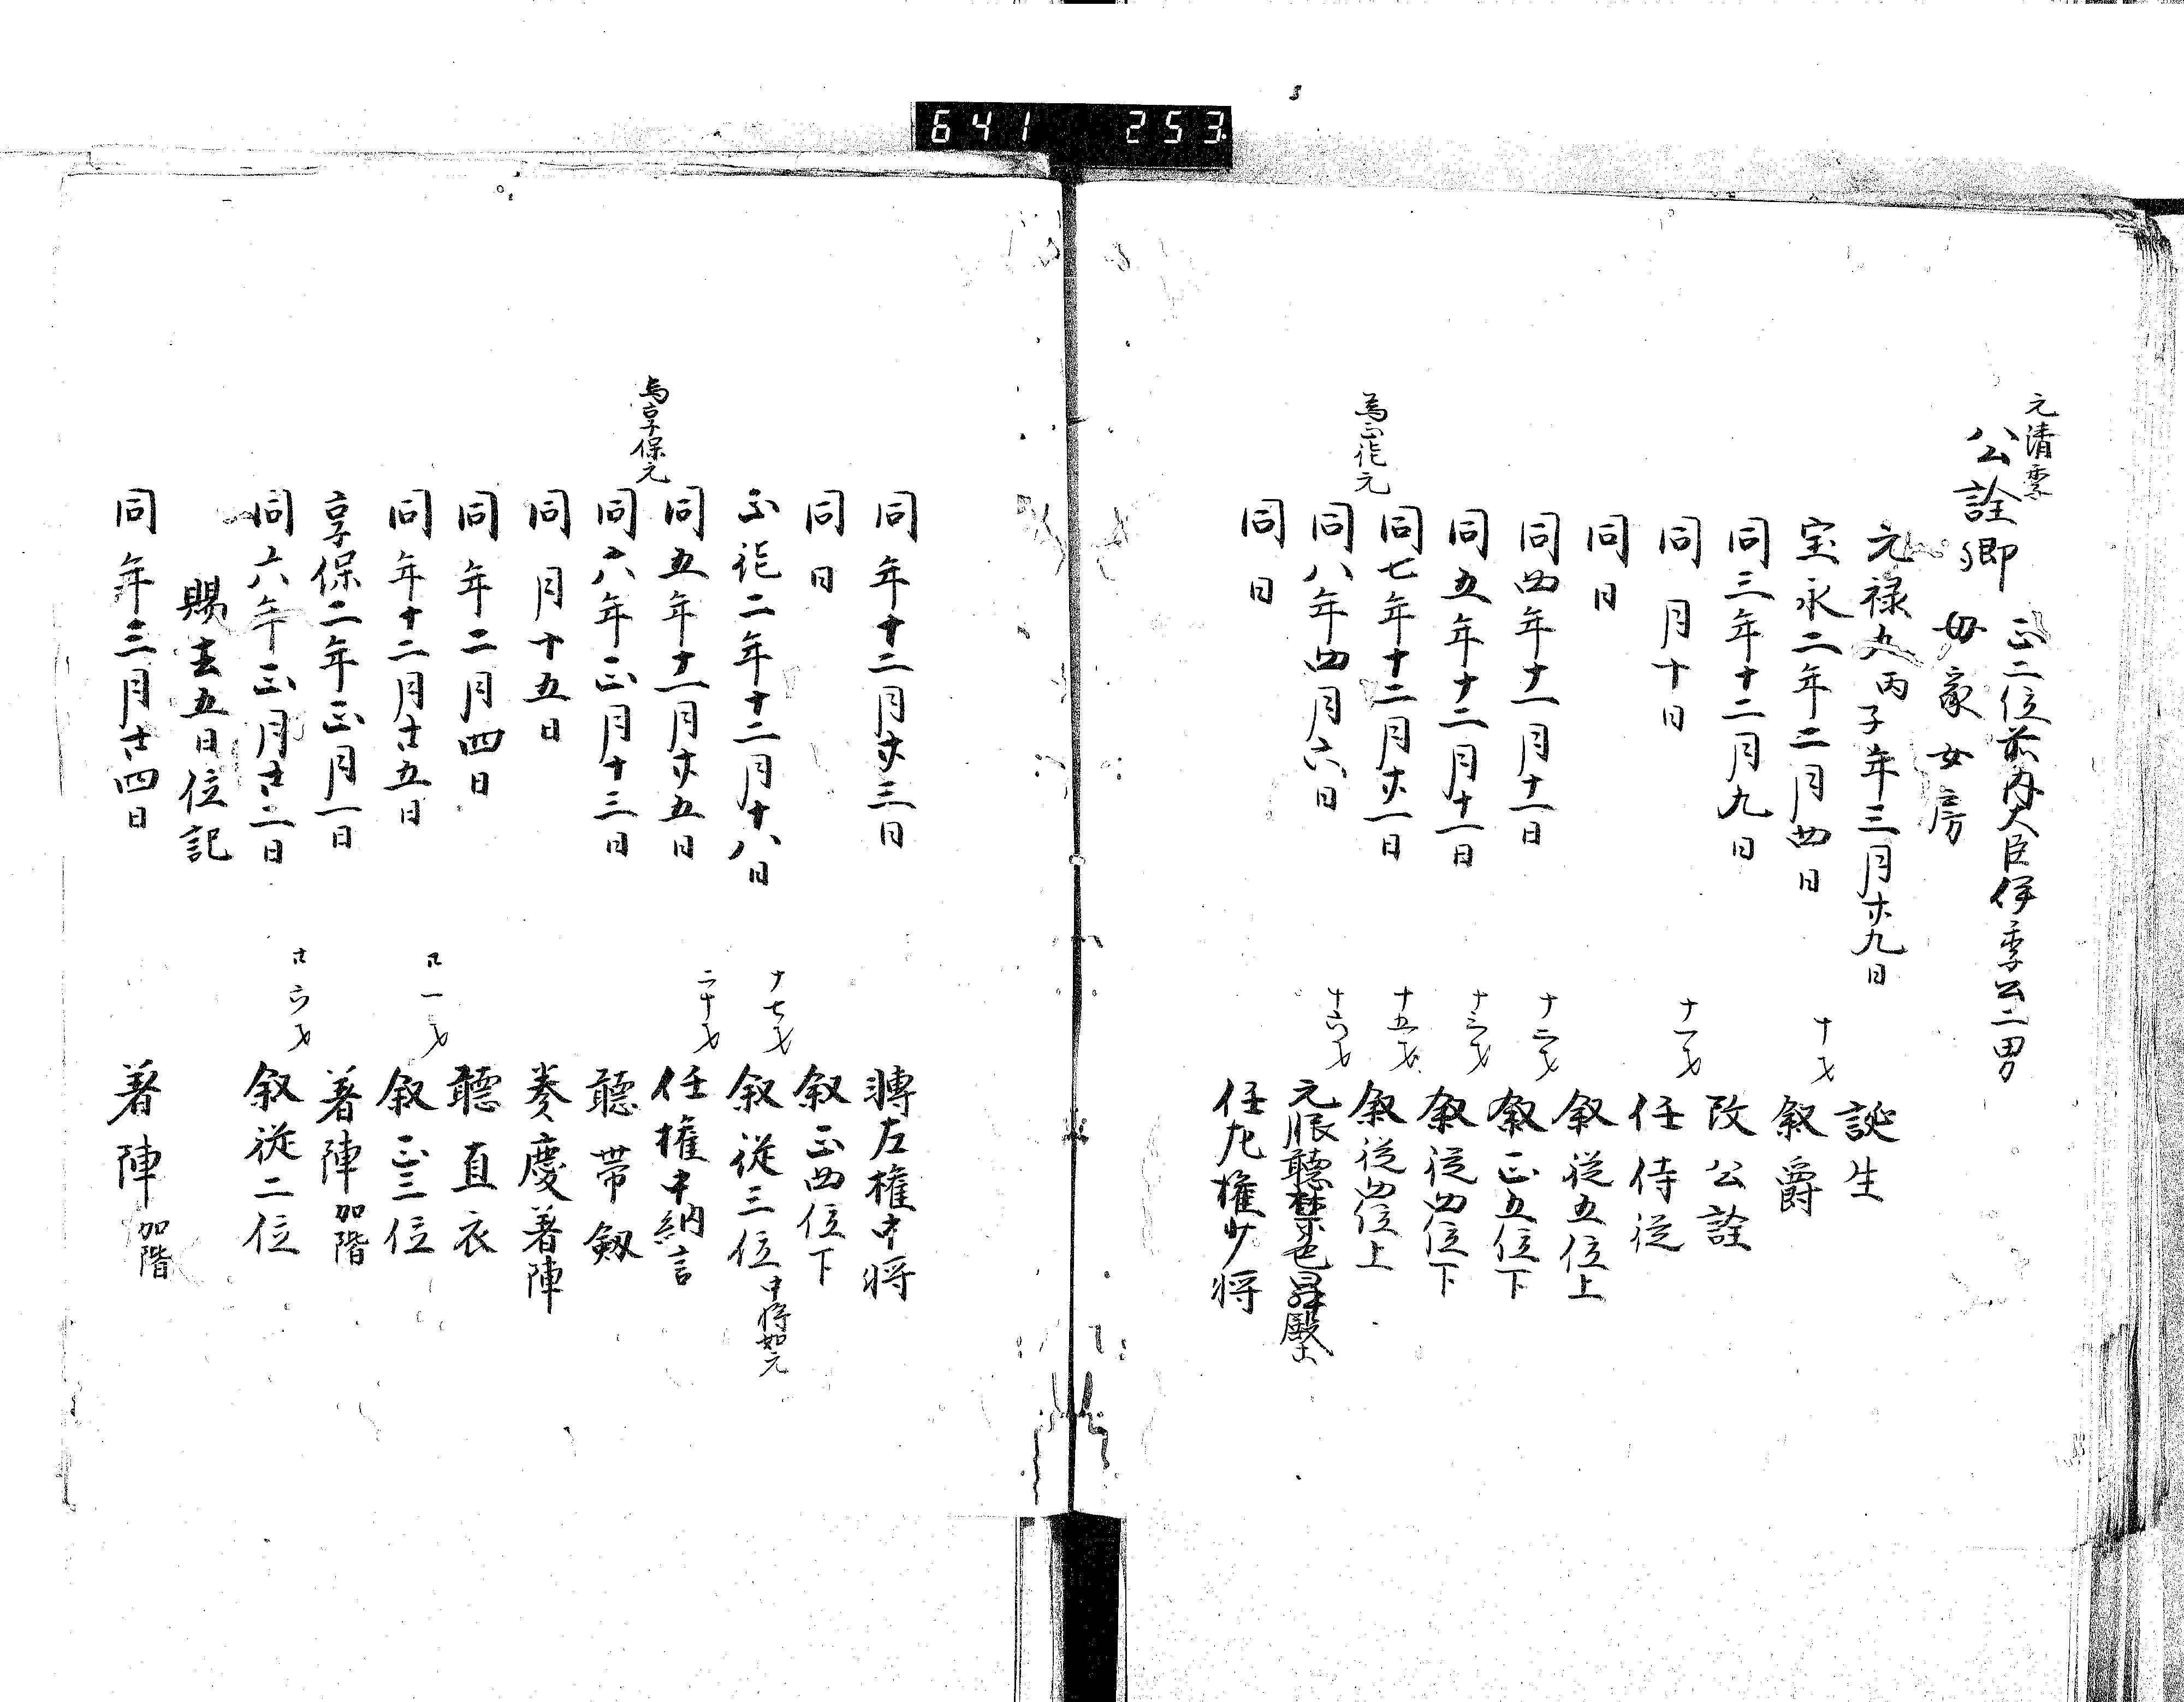 641 253
元清季
公詮卿 正二位前内大臣伊季公二男
母家女房
元禄九丙子年三月廿九日 誕生
宝永二年二月四日 十才 叙爵
同三年十二月九日 改公詮
同月十日 十一才 任侍従
同日 叙従五位上
同四年十一月十一日 十二才 叙正五位下
同五年十二月十一日 十三才 叙従四位下
同七年十二月廿一日 十五才 叙従四位上
為正徳元
同八年四月六日 十六才 元服聴禁色昇殿
同日 任左権少将
同年十二月廿三日 転左権中将
同日 叙正四位下
正徳二年十二月十八日 十七才 叙従三位 中将如元
同五年十一月廿五日 二十才 任権中納言
為享保元
同六年正月十三日 聴帯剱
同月十五日 奏慶着陣
同年二月四日 聴直衣
同年十二月廿五日 廿一才 叙正三位
享保二年正月一日 着陣 加階
同六年正月廿二日 廿六才 叙従二位
賜去五日位記
同年三月廿四日 着陣 加階